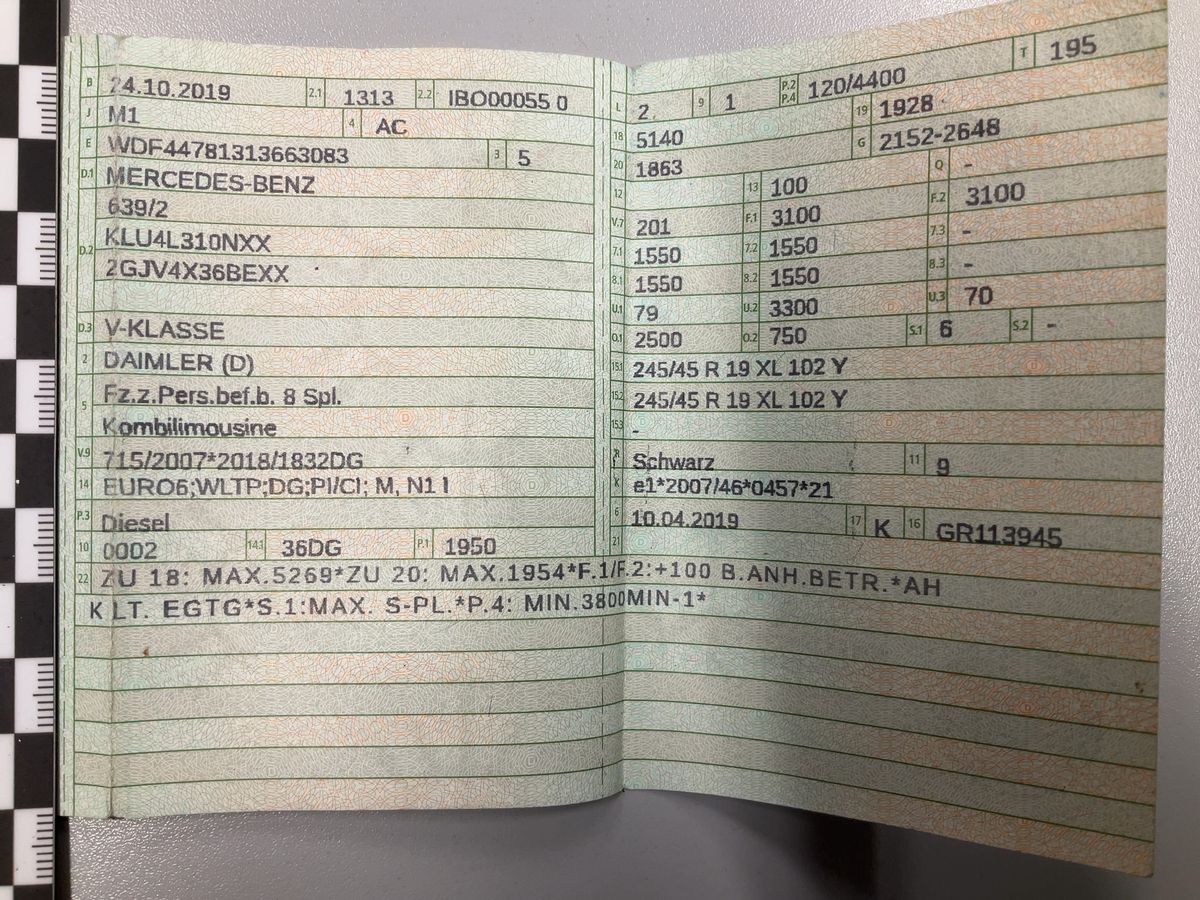 B 24.10.2019 2.1 1313 2.2 IBO00055 0
J M1 4 AC
E WDF44781313663083 3 5
D.1 MERCEDES-BENZ
639/2
D.2 KLU4L310NXX
2GJV4X36BEXX
D.3 V-KLASSE
2 DAIMLER (D)
5 Fz.z.Pers.bef.b. 8 Spl.
Kombilimousine
V.9 715/2007*2018/1832DG
14 EURO6;WLTP;DG;PI/CI; M, N1 I
P.3 Diesel
10 0002 14.1 36DG P.1 1950
L 2 9 1 P.2 P.4 120/4400 T 195
18 5140 19 1928
20 1863 G 2152-2648
12 13 100 Q -
V.7 201 F.1 3100 F.2 3100
7.1 1550 7.2 1550 7.3 -
8.1 1550 8.2 1550 8.3 -
U.1 79 U.2 3300 U.3 70
O.1 2500 O.2 750 S.1 6 S.2 -
15.1 245/45 R 19 XL 102 Y
15.2 245/45 R 19 XL 102 Y
15.3 -
R Schwarz 11 9
K e1*2007/46*0457*21
6 10.04.2019 17 K 16 GR113945
21
22 ZU 18: MAX.5269*ZU 20: MAX.1954*F.1/F.2:+100 B.ANH.BETR.*AH
K LT. EGTG*S.1:MAX. S-PL.*P.4: MIN.3800MIN-1*